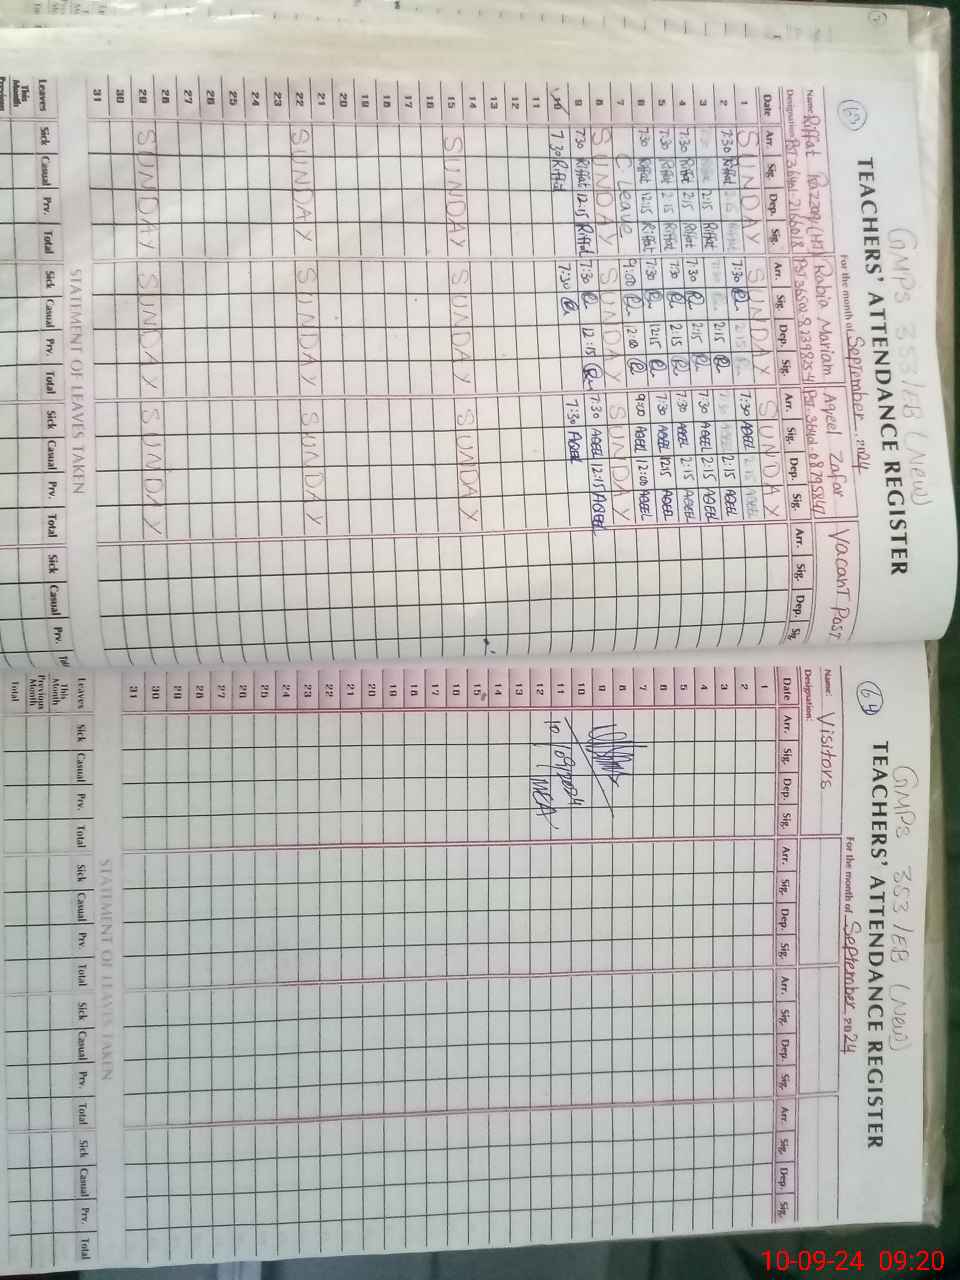 63
GMPS 353/EB (New)
TEACHERS' ATTENDANCE REGISTER
For the month of September 2024
Name: Riffat Razzaq (HT) Rabia Mariam Aqeel Zafar Vacant Post
Designation:
Date Arr. Sig. Dep. Sig. Arr. Sig. Dep. Sig. Arr. Sig. Dep. Sig. Arr. Sig. Dep. Sig.
1 SUNDAY SUNDAY SUNDAY
2 7:30 Riffat 2:15 Riffat 7:30 2:15 7:30 AQEEL 2:15 AQEEL
3 7:30 2:15 Riffat 7:30 2:15 7:30 AQEEL 2:15 AQEEL
4 7:30 Riffat 2:15 Riffat 7:30 2:15 7:30 AQEEL 2:15 AQEEL
5 7:30 Riffat 2:15 Riffat 7:30 2:15 7:30 AQEEL 2:15 AQEEL
6 7:30 Riffat 12:15 Riffat 7:30 12:15 7:30 AQEEL 12:15 AQEEL
7 C Leave 9:00 2:00 9:00 AQEEL 12:00 AQEEL
8 SUNDAY SUNDAY SUNDAY
9 7:30 Riffat 12:15 Riffat 7:30 12:15 7:30 AQEEL 12:15 AQEEL
10 7:30 Riffat 7:30 7:30 AQEEL
11
12
13
14
15 SUNDAY SUNDAY SUNDAY
16
17
18
19
20
21
22 SUNDAY SUNDAY SUNDAY
23
24
25
26
27
28
29 SUNDAY SUNDAY SUNDAY
30
31
STATEMENT OF LEAVES TAKEN
Leaves Sick Casual Prv. Total Sick Casual Prv. Total Sick Casual Prv. Total Sick Casual Prv.
This Month
Previous
64
GMPS 353/EB (New)
TEACHERS' ATTENDANCE REGISTER
For the month of September 2024
Name: Visitors
Designation:
Date Arr. Sig. Dep. Sig. Arr. Sig. Dep. Sig. Arr. Sig. Dep. Sig. Arr. Sig. Dep. Sig.
1
2
3
4
5
6
7
8
9
10
11 10/09/2024
12 MEA
13
14
15
16
17
18
19
20
21
22
23
24
25
26
27
28
29
30
31
STATEMENT OF LEAVES TAKEN
Leaves Sick Casual Prv. Total Sick Casual Prv. Total Sick Casual Prv. Total Sick Casual Prv. Total
This Month
Previous Month
Total
10-09-24 09:20